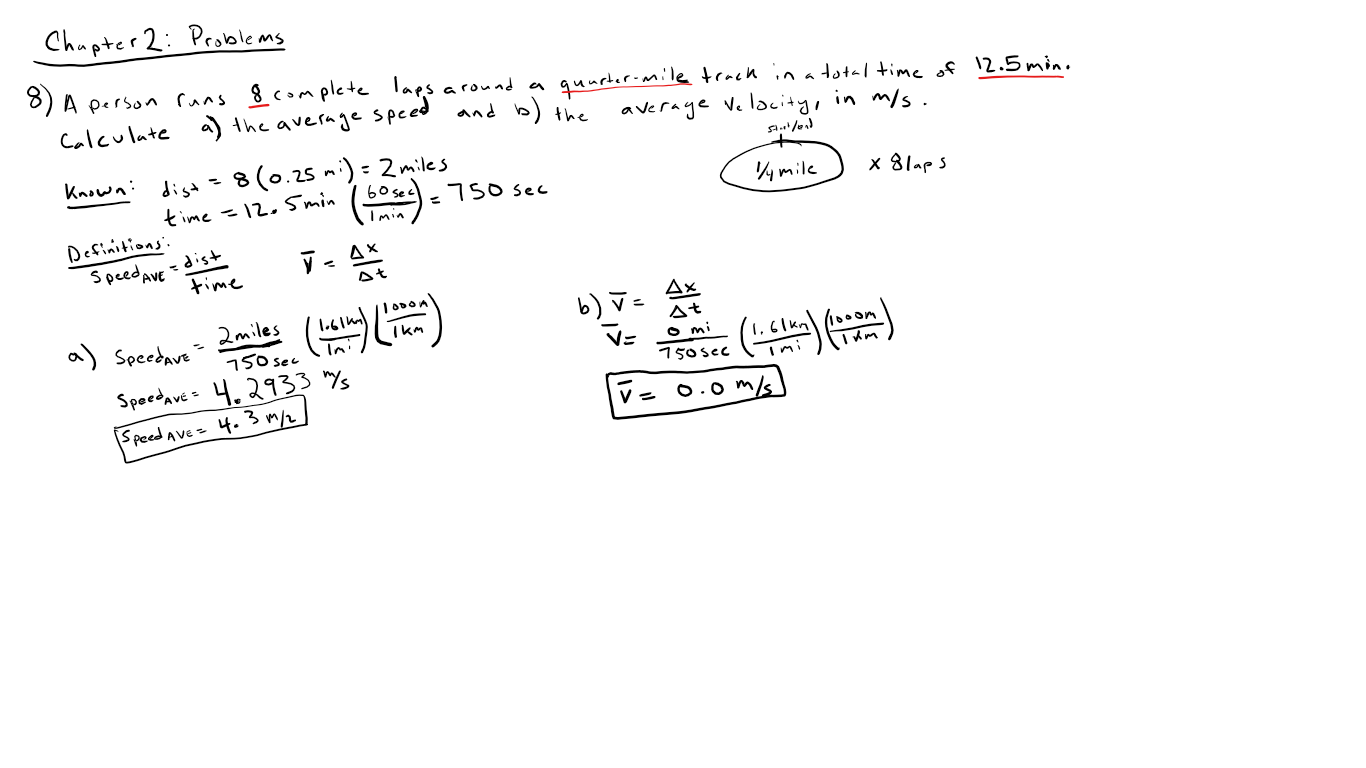 Chapter 2: Problems
8) A person runs 8 complete laps around a quarter-mile track in a total time of 12.5 min.
Calculate a) the average speed and b) the average velocity, in m/s.
start/end
1/4 mile x 8 laps
Known: dist = 8 (0.25 mi) = 2 miles
time = 12.5 min (60 sec / 1 min) = 750 sec
Definitions:
Speed AVE = dist / time
v̄ = Δx / Δt
a) Speed AVE = 2 miles / 750 sec (1.61 km / 1 mi) (1000 m / 1 km)
Speed AVE = 4.2933 m/s
Speed AVE = 4.3 m/2
b) v̄ = Δx / Δt
v̄ = 0 mi / 750 sec (1.61 km / 1 mi) (1000 m / 1 km)
v̄ = 0.0 m/s